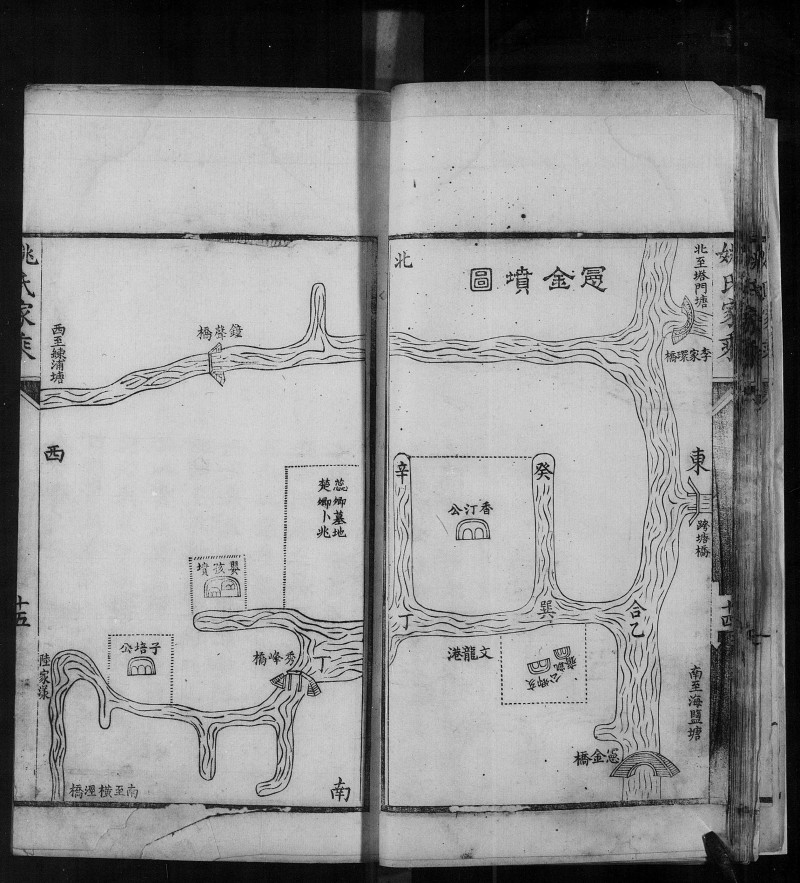 姚氏家乘
十四
圖墳金寋
北
北至塔門塘
李家環橋
東
跨塘橋
南至海鹽塘
癸
辛
香汀公
合乙
巽
丁
文龍港
公卿亥
金橋
姚氏家乘
十五
鐘聲橋
西至練浦塘
西
蕊卿墓地
楚卿卜兆
嬰孩墳
子培公
秀峰橋
丁
陸家漾
南至橫溼橋
南